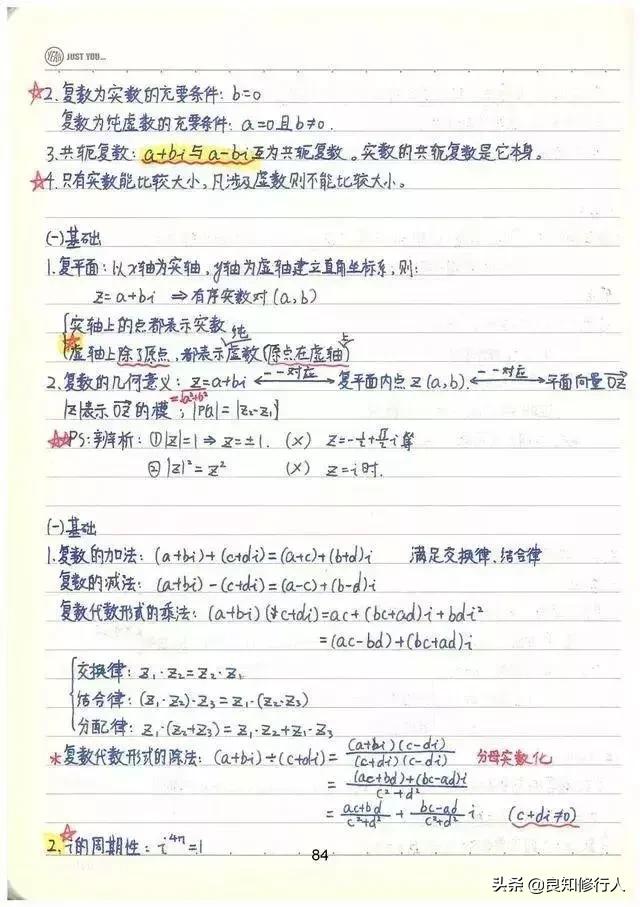 YEAH JUST YOU...
☆2. 复数为实数的充要条件: b=0
复数为纯虚数的充要条件: a=0且b≠0.
3.共轭复数: a+bi与a-bi互为共轭复数。实数的共轭复数是它本身。
☆4.只有实数能比较大小,凡涉及虚数则不能比较大小。
(一)基础
1.复平面: 以x轴为实轴, y轴为虚轴建立直角坐标系, 则:
z=a+bi ⇒有序实数对(a,b)
{实轴上的点都表示实数
纯
☆虚轴上除了原点, 都表示虚数(原点在虚轴)
2.复数的几何意义: z=a+bi ←一一对应→ 复平面内点z(a,b). ←一一对应→ 平面向量OZ
=√a²+b²
|z|表示OZ的模; |PQ|=|z₂-z₁|
☆☆PS:辨析: ①|z|=1⇒z=±1. (×) z=-½+√3/2 i等
②|z|²=z² (×) z=i时.
(一)基础
1.复数的加法: (a+bi)+(c+di)=(a+c)+(b+d)i 满足交换律、结合律
复数的减法: (a+bi)-(c+di)=(a-c)+(b-d)i
复数代数形式的乘法: (a+bi)(c+di)=ac+(bc+ad)i+bdi²
=(ac-bd)+(bc+ad)i
{交换律: z₁·z₂=z₂·z₁
结合律: (z₁·z₂)·z₃=z₁·(z₂·z₃)
分配律: z₁·(z₂+z₃)=z₁·z₂+z₁·z₃
*复数代数形式的除法: (a+bi)÷(c+di)=(a+bi)(c-di)/(c+di)(c-di) 分母实数化
=(ac+bd)+(bc-ad)i/c²+d²
=ac+bd/c²+d² + bc-ad/c²+d² i (c+di≠0)
☆2. i的周期性: i⁴ⁿ=1
84
头条 @良知修行人